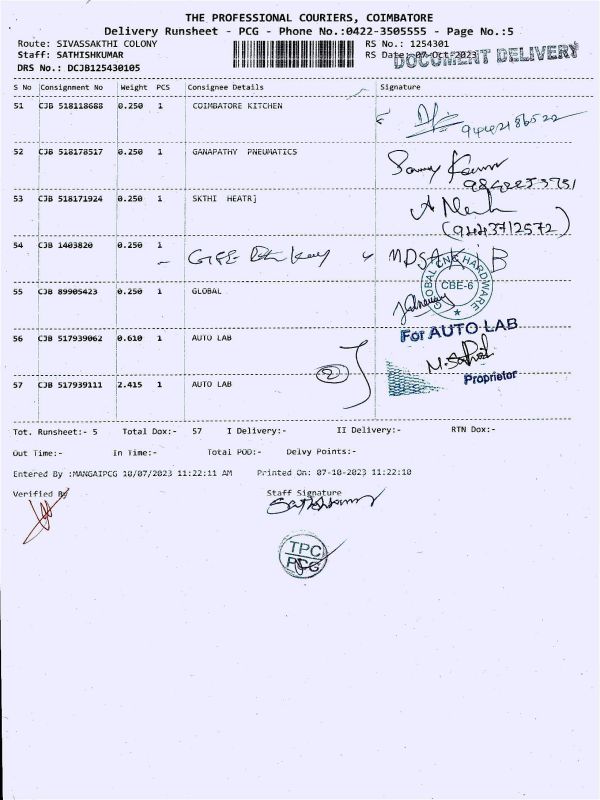 THE PROFESSIONAL COURIERS, COIMBATORE
Delivery Runsheet - PCG - Phone No.:0422-3505555 - Page No.:5
Route: SIVASSAKTHI COLONY RS No.: 1254301
Staff: SATHISHKUMAR RS Date:07-Oct-2023
DOCUMENT DELIVERY
DRS No.: DCJB125430105
S No Consignment No Weight PCS Consignee Details Signature
51 CJB 518118688 0.250 1 COIMBATORE KITCHEN
52 CJB 518178517 0.250 1 GANAPATHY PNEUMATICS
53 CJB 518171924 0.250 1 SKTHI HEATR]
(9443712572)
54 CJB 1403820 0.250 1
55 CJB 89905423 0.250 1 GLOBAL
GLOBAL CNC HARDWARE
CBE-6
56 CJB 517939062 0.610 1 AUTO LAB
For AUTO LAB
57 CJB 517939111 2.415 1 AUTO LAB
2
Proprietor
Tot. Runsheet:- 5 Total Dox:- 57 I Delivery:- II Delivery:- RTN Dox:-
Out Time:- In Time:- Total POD:- Delvy Points:-
Entered By :MANGAIPCG 10/07/2023 11:22:11 AM Printed On: 07-10-2023 11:22:10
Verified By Staff Signature
TPC
PCG